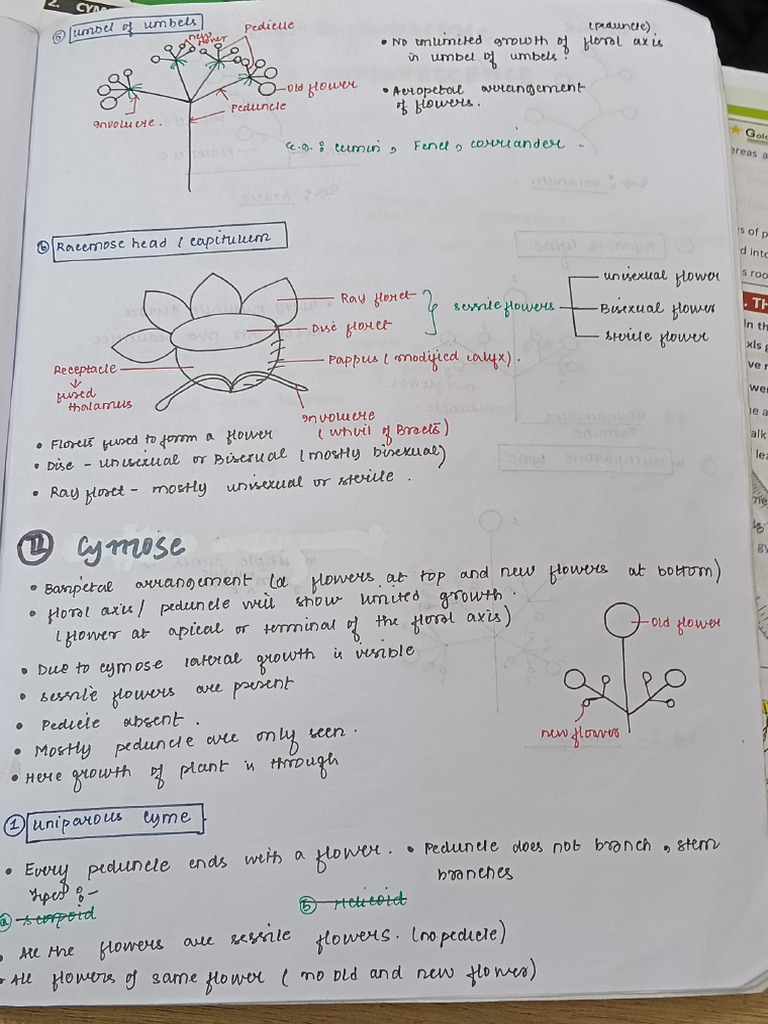 2. CYM
ⓐ umbel of umbels
Pedicelle
new flower
Old flower
Peduncle
Involucre.
(peduncle)
• No unlimited growth of floral axis
in umbel of umbels.
• Acropetal arrangement
of flowers.
e.g : cumin, Fenel, corriander -
ⓑ Racemose head / capitulum
Ray floret
Disc floret
Pappus (modified calyx).
sessile flowers
unisexual flower
Bisexual flower
sterile flower
Receptacle
fused
thalamus
Involucre
(whril of Bracts)
• Florets fused to form a flower
• Disc - unisexual or Bisexual (mostly bisexual)
• Ray floret - mostly unisexual or sterile.
II Cymose
• Basipetal arrangement (old flowers at top and new flowers at bottom)
• floral axis / peduncle will show limited growth.
(flower at apical or terminal of the floral axis)
• Due to cymose lateral growth is visible
• sessile flowers are present
• Pedicle absent.
• Mostly peduncle are only seen.
• Here growth of plant is through
Old flower
new flower
① uniparous cyme
• Every peduncle ends with a flower. • Peduncle does not branch, stem
branches
Types :-
ⓐ scorpoid
ⓑ Helicoid
• All the flowers are sessile flowers. (no pedicle)
• All flowers of same flower (no old and new flower)